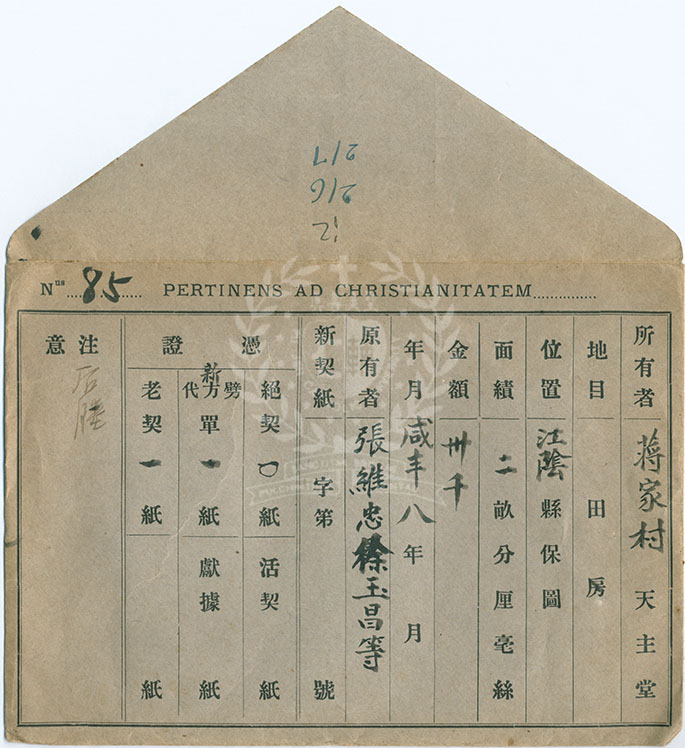 217
216
12
Nus 85 PERTINENS AD CHRISTIANITATEM
所有者 蔣家村 天主堂
地目 田房
位置 江陰縣保圖
面績 二畝分厘毫絲
金額 卅千
年月 咸丰八年月
原有者 張維忠徐玉昌等
新契紙 字第 號
憑證
絕契〇紙 活契 紙
新 劈方單一紙 獻據 紙
代
老契一紙 紙
注意